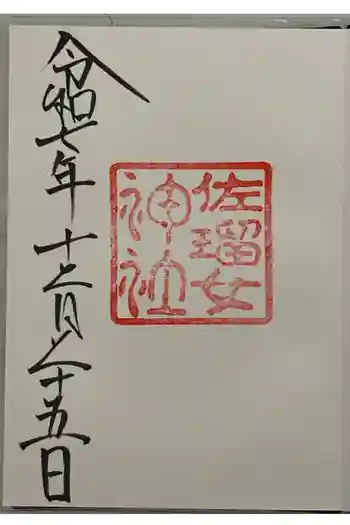 佐瑠女
神社
令和七年十二月二十五日